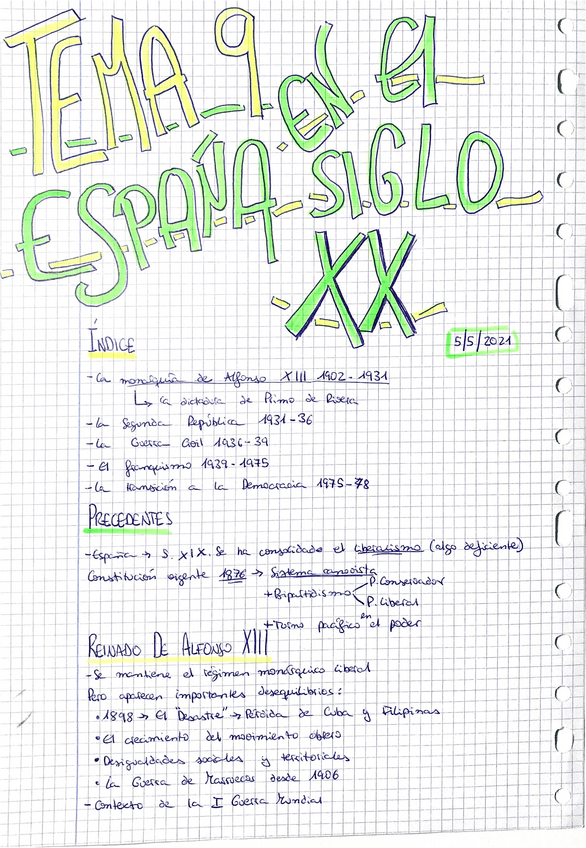 TEMA 9
EN El
ESPAÑA SIGLO
XX
ÍNDICE
5/5/2021
- La monarquía de Alfonso XIII 1902-1931
↳ La dictadura de Primo de Rivera
- La Segunda República 1931-36
- La Guerra Civil 1936-39
- El franquismo 1939-1975
- La transición a la Democracia 1975-78
PRECEDENTES
- España → S. XIX. Se ha consolidado el liberalismo (algo deficiente)
Constitución vigente 1876 → Sistema canovista
+ Bipartidismo
P. Conservador
P. Liberal
+ Turno pacífico en el poder
REINADO DE ALFONSO XIII
- Se mantiene el régimen monárquico liberal
Pero aparecen importantes desequilibrios:
• 1898 → El "Desastre" → Pérdida de Cuba y Filipinas
• El crecimiento del movimiento obrero
• Desigualdades sociales y territoriales
• La Guerra de Marruecos desde 1906
- Contexto de la I Guerra Mundial